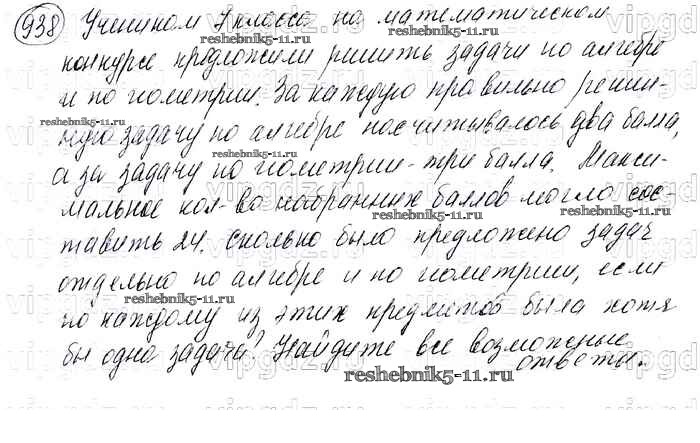 938 Ученикам 7 класса на математическом
конкурсе предложили решить задачи по алгебре
и по геометрии. За каждую правильно решен-
ную задачу по алгебре насчитывалось два балла,
а за задачу по геометрии - три балла. Макси-
мальное кол-во набранных баллов могло сос-
тавить 24. Сколько было предложено задач
отдельно по алгебре и по геометрии, если
по каждому из этих предметов была хотя
бы одна задача? Найдите все возможные
ответы.
reshebnik5-11.ru
reshebnik5-11.ru
reshebnik5-11.ru
reshebnik5-11.ru
reshebnik5-11.ru
reshebnik5-11.ru
vipgdz.ru